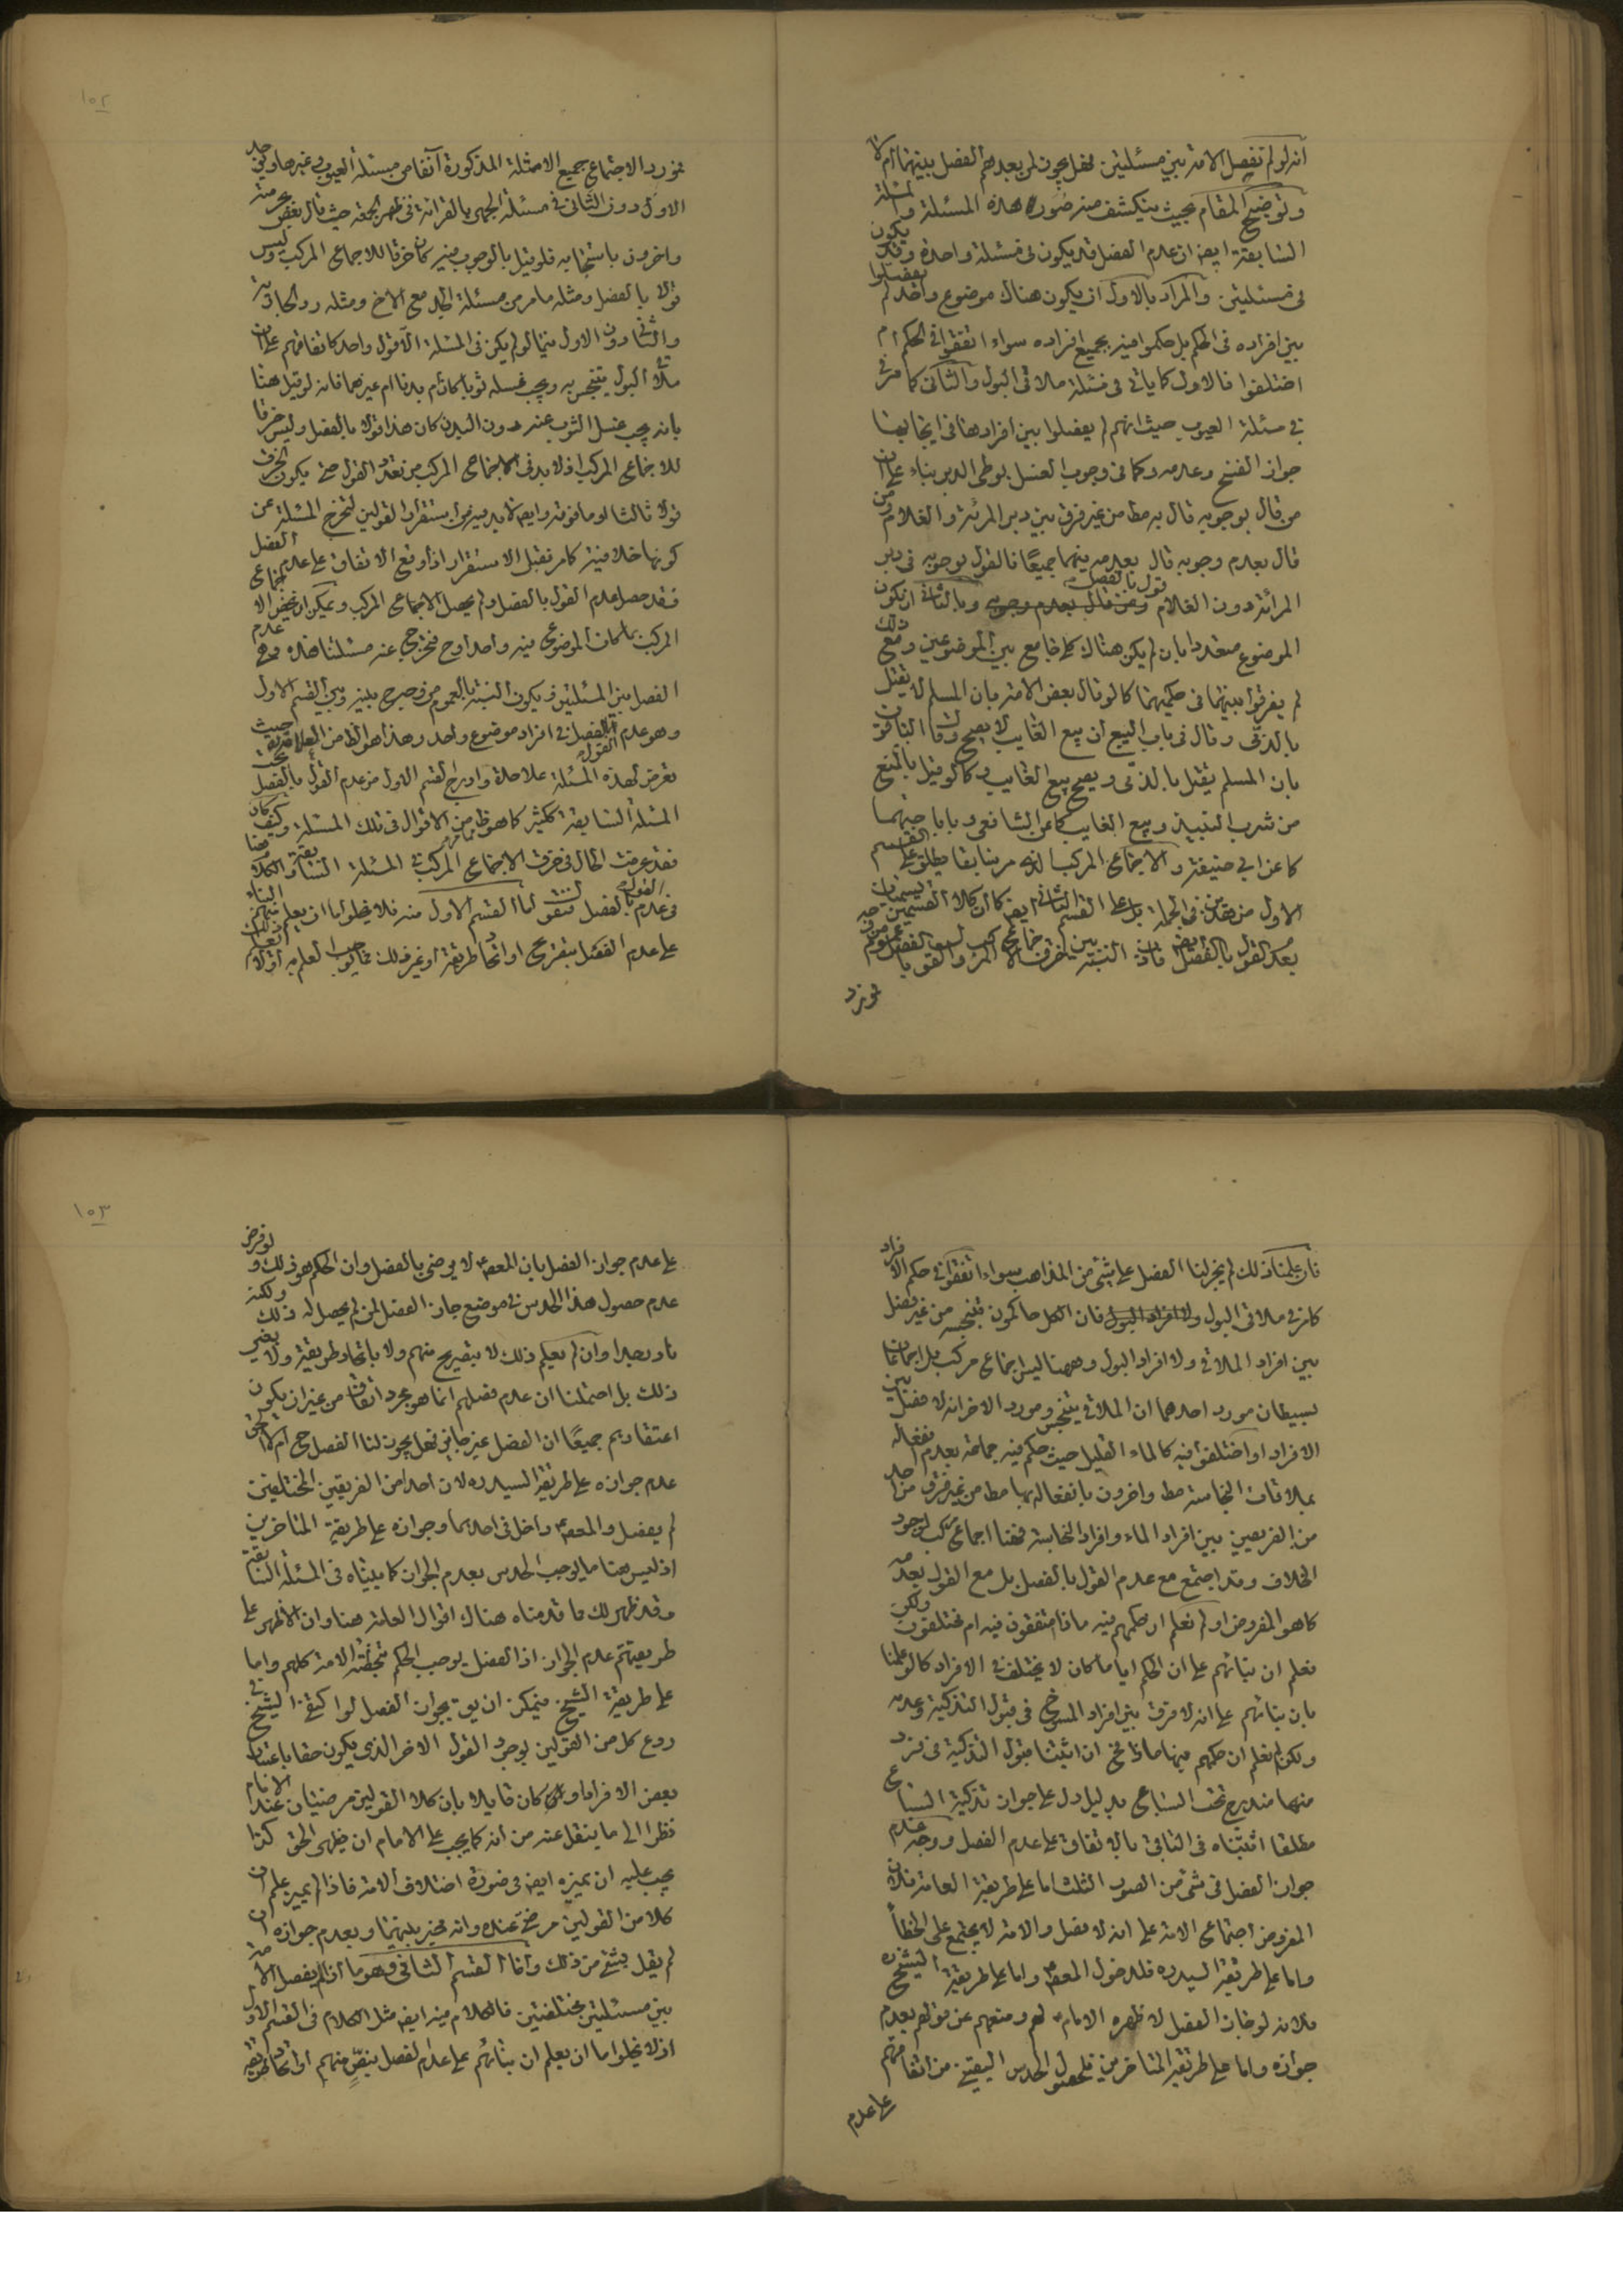 انه لو لم تفصل الامة بين مسئلتين فهل يجوز لمن بعدهم الفصل بينهما ام لا
وتوضيح المقام بحيث ينكشف منه صورة هذه المسئلة والمسئلة
السابقة ايضا ان عدم الفصل قد يكون فى مسئلة واحدة وقد يكون
فى مسئلتين والمراد بالاول ان يكون هناك موضوع واحد لم يفصلوا
بين افراده فى الحكم بل حكموا فيه بجميع افراده سواء اتفقوا فى الحكم ام
اختلفوا فالاول كما ياتى فى مسئلة ملاقى البول والثانى كما مر فى
فى مسئلة العيوب حيث انهم لم يفصلوا بين افرادها فى ايجابها
جواز الفسخ وعدمه وكما فى وجوب الغسل بوطى الدبر بناء على ان
من قال بوجوبه قال به مط من غير فرق بين دبر المرئة والغلام ومن
قال بعدم وجوبه قال بعدمه فيهما جميعًا فالقول بوجوبه فى دبر
المرائة دون الغلام قول بالفصل وبالثانى ان يكون
الموضوع متعددا بان لم يكن هناك كلى جامع بين الموضوعين ومع ذلك
لم يفرقوا بينهما فى حكميهما كما لو قال بعض الامة بان المسلم لا يقتل
بالذمى وقال فى باب البيع ان بيع الغايب لا يصح وقال الباقون
بان المسلم يقتل بالذمى ويصح بيع الغايب وكما لو قيل بالمنع
من شرب النبيذ وبيع الغايب كما عن الشافعى وباباحتهما
كما عن ابى حنيفة والاجماع المركب الذى مر سابقا يطلق على القسم
الاول من هذين فى الجملة بل على القسم الثانى ايضا كما ان كلا القسمين يسميان
بعدم القول بالفصل ايضا فاذن النسبة بين خرق الاجماع المركب والقول بالفصل عموم من وجه
لمورد
١٠٢
لمورد الاجتماع جميع الامثلة المذكورة آنفا من مسئلة العيوب وغيرها ويوجد
الاول دون الثانى فى مسئلة الجهر بالقرائة فى ظهر الجمعة حيث قال بعض بحرمته
واخرون باستحبابه فلو قيل بالوجوب فيه كان خرقا للاجماع المركب وليس
قولا بالفصل ومثله ما مر من مسئلة الجد مع الاخ ومثله رد الجارية
والثانى دون الاول فيما لو لم يكن فى المسئلة الا قول واحد كاتفاقهم على ان
ملاقى البول يتنجس به ويجب غسله ثوبا كان ام بدنا ام غيرهما فانه لو قيل هنا
بانه يجب غسل الثوب عنه دون البدن كان هذا قولا بالفصل وليس خرقا
للاجماع المركب اذ لا بد فى الاجماع المركب من تعدد القول حتى يكون الخرق
قولا ثالثا او ما فوقه وايضا لا بد فيه من استقرار القولين لتخرج المسئلة عن
كونها خلافية كما مر فقبل الاستقرار اذا وقع الاتفاق على عدم الفصل
فقد حصل عدم القول بالفصل ولم يحصل الاجماع المركب ويمكن ان يخص الاجماع
المركب بما كان الموضوع فيه واحدا وح فيخرج عنه مسئلتنا هذه وهى عدم
الفصل بين المسئلتين ويكون النسبة بالعموم من وجه ح بينه وبين القسم الاول
وهو عدم الفصل فى افراد موضوع واحد وهذا هو الظاهر من العلامة حيث
تعرض لهذه المسئلة علاحدة وادراج القسم الاول من عدم القول بالفصل تحت
المسئلة السابقة ككثير كما هو ظاهر من الاقوال فى تلك المسئلة وكيف كان
فقد عرفت الحال فى خرق الاجماع المركب فى المسئلة السابقة والكلام هنا
فى عدم القول بالفصل فنقول اما القسم الاول منه فلا يخلو اما ان يعلم منهم البناء
على عدم الفصل بتصريح او اتحاد طريقة او غير ذلك مما يوجب العلم به اولا
فان علمنا ذلك لم يجز لنا الفصل على شئ من المذاهب سواء اتفقوا فى حكم الافراد
كما مر فى ملاقى البول فان الكل حاكمون بتنجسه من غير فصل
بين افراد الملاقى ولا افراد البول وههنا ليس اجماع مركب بل اجماعان
بسيطان مورد احدهما ان الملاقى يتنجس ومورد الاخر انه لا فصل بين
الافراد او اختلفوا فيه كالماء القليل حيث حكم فيه جماعة بعدم انفعاله
بملاقات النجاسة مط واخرون بانفعاله بها مط من غير فرق من احد
من الفريقين بين افراد الماء وافراد النجاسة فهنا اجماع مركب لوجود
الخلاف وقد اجتمع مع عدم القول بالفصل بل مع القول بعدمه
كما هو المفروض او لم نعلم ان حكمهم فيه ماذا متفقون فيه ام مختلفون ولكن
نعلم ان بنائهم على ان الحكم ايا ما كان لا يختلف فى الافراد كما لو علمنا
بان بنائهم على انه لا فرق بين افراد المسوخ فى قبول التذكية وعدمه
ولكن لم نعلم ان حكمهم فيها ماذا فح ان اثبتنا قبول التذكية فى فرد
منها مندرج تحت السباع بدليل دل على جواز تذكية السباع
مطلقا اثبتناه فى الباقى بالاتفاق على عدم الفصل ووجه عدم
جواز الفصل فى شئ من الصور الثلث اما على طريقة العامة فلان
المفروض اجتماع الامة على انه لا فصل والامة لا يجتمع على الخطأ
واما على طريقة السيد ره فلدخول المعصوم واما على طريقة الشيخ ره
فلانه لو جاز الفصل لاظهره الامام لهم ومنعهم عن قولهم بعدم
جوازه واما على طريقة المتاخرين فلحصول الحدس اليقينى من اتفاقهم
على عدم
١٠٣
على عدم جواز الفصل بان المعصوم لا يرضى بالفصل وان الحكم هو ذلك ولو فرض
عدم حصول هذا الحدس فى موضع جاز الفصل لمن لم يحصل له ذلك ولكنه
نادر جدا وان لم يعلم ذلك لا بتصريح منهم ولا باتحاد طريقة ولا بغير
ذلك بل احتملنا ان عدم فصلهم انما هو مجرد اتفاق من غير ان يكون
اعتقادهم جميعًا ان الفصل غير جايز فهل يجوز لنا الفصل ح ام لا الحق
عدم جوازه على طريقة السيد ره لان احدا من الفريقين المختلفين
لم يفصل والمعصوم داخل فى احدهما وجوازه على طريقة المتاخرين
اذ ليس هنا ما يوجب الحدس بعدم الجواز كما بيناه فى المسئلة السابقة
وقد ظهر لك مما قدمناه هناك اقوال العامة هنا وان الاظهر على
طريقتهم عدم الجواز اذ الفصل يوجب الحكم بتخطئة الامة كلهم واما
على طريقة الشيخ فيمكن ان يق بجواز الفصل لو اكتفى الشيخ فى
ردع كل من القولين بوجود القول الاخر الذى يكون حقا باعتبار
بعض الافراد او كان قايلا بان كلا القولين مرضيان عند الامام
نظرا الى ما ينقل عنه من انه كما يجب على الامام ان يظهر الحق كذا
يجب عليه ان يميزه ايضا فى صورة اختلاف الامة فاذا لم يميز علم ان
كلا من القولين مرضى عنده وانه مخير بينهما وبعدم جوازه ان
لم يقل بشئ من ذلك واما القسم الثانى وهو ما اذا لم يفصل الامة
بين مسئلتين مختلفتين فالكلام فيه ايضا مثل الكلام فى القسم الاول
اذ لا يخلوا اما ان يعلم ان بنائهم على عدم الفصل بنص منهم او اتحاد طريقة